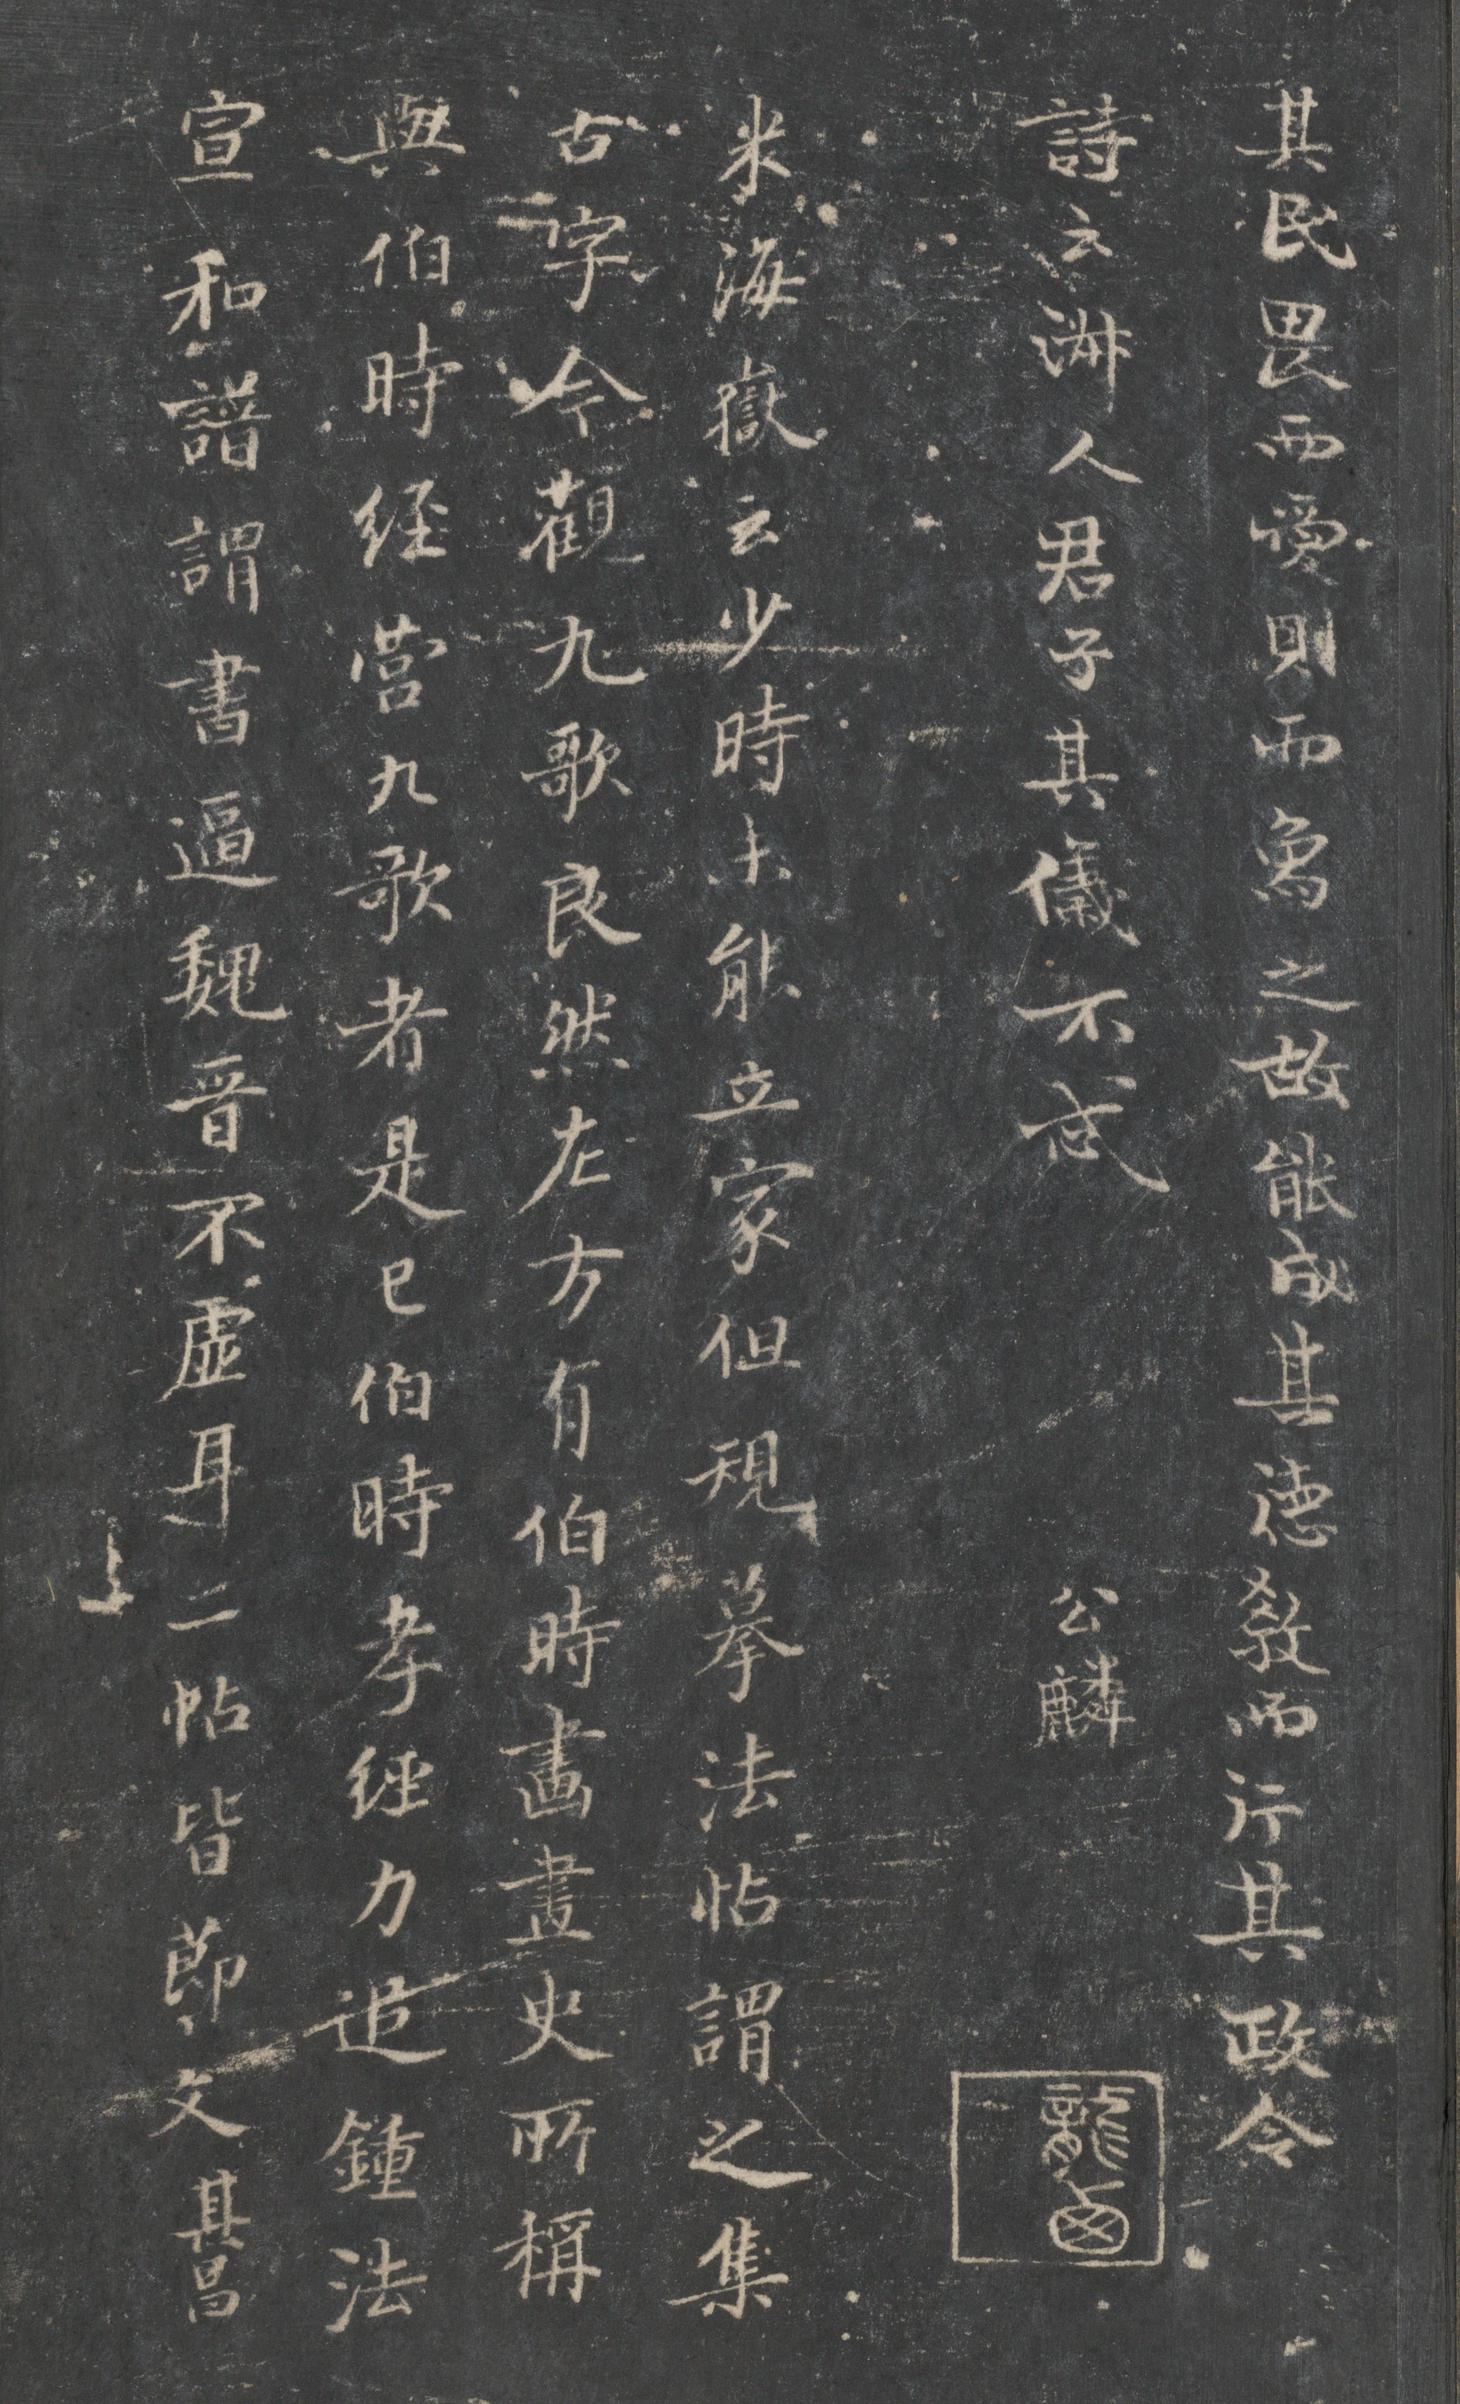 其民畏而愛則而象之故能成其德教而行其政令
詩云淑人君子其儀不忒
公麟
米海嶽云少時未能立家但規摹法帖謂之集
古字今觀九歌良然左方有伯時畫畫史所稱
與伯時經營九歌者是已伯時孝經力追鍾法
宣和譜謂書逼魏晉不虛耳二帖皆節文其昌
上